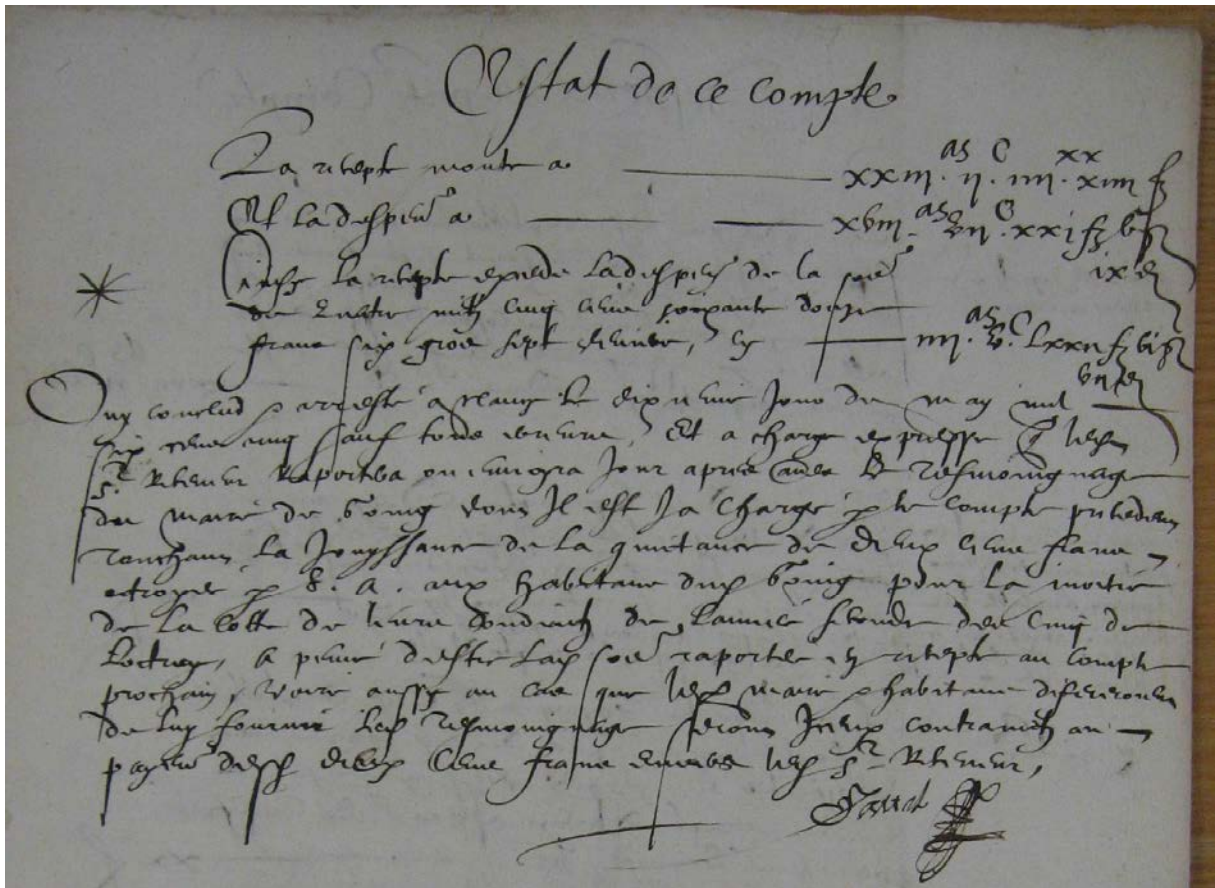 Estat de ce compte
La recepte monte a xxiii.m ii.c iiii.xx xiiii fz
Et la despen a xviii.m vii.c xxi fz vi g
ix d
Ainsy la recepte excede la despen de la som
de quatre mil cinq cens soixante douze
francs six gros sept deniers, cy iiii.m v.c lxxii fz vi g
vii d
Ouy conclud et arresté a le dixieme Jour de may mil
six cens cinq sauf tous erreurs, Et a charge expresse q led
sr Receveur Raportera Jour apres le Tesmoignage
du maire de dont Il est Ja Chargé p le compte precedent
Touchant la Jouyssance de la quittance de deux cens francs
octroyee p S. A. aux habitans dud pour la moictié
de la cotte de leurs de l'année seconde des cinq de
l'octroy, a peine d'estre lad som raportee en recepte au compte
prochain, voire aussy au cas que lesd maire et habitans
de luy fournir led Tesmoignage seront Iceux contrainctz au
payem desd deux cens francs envers led sr Receveur,